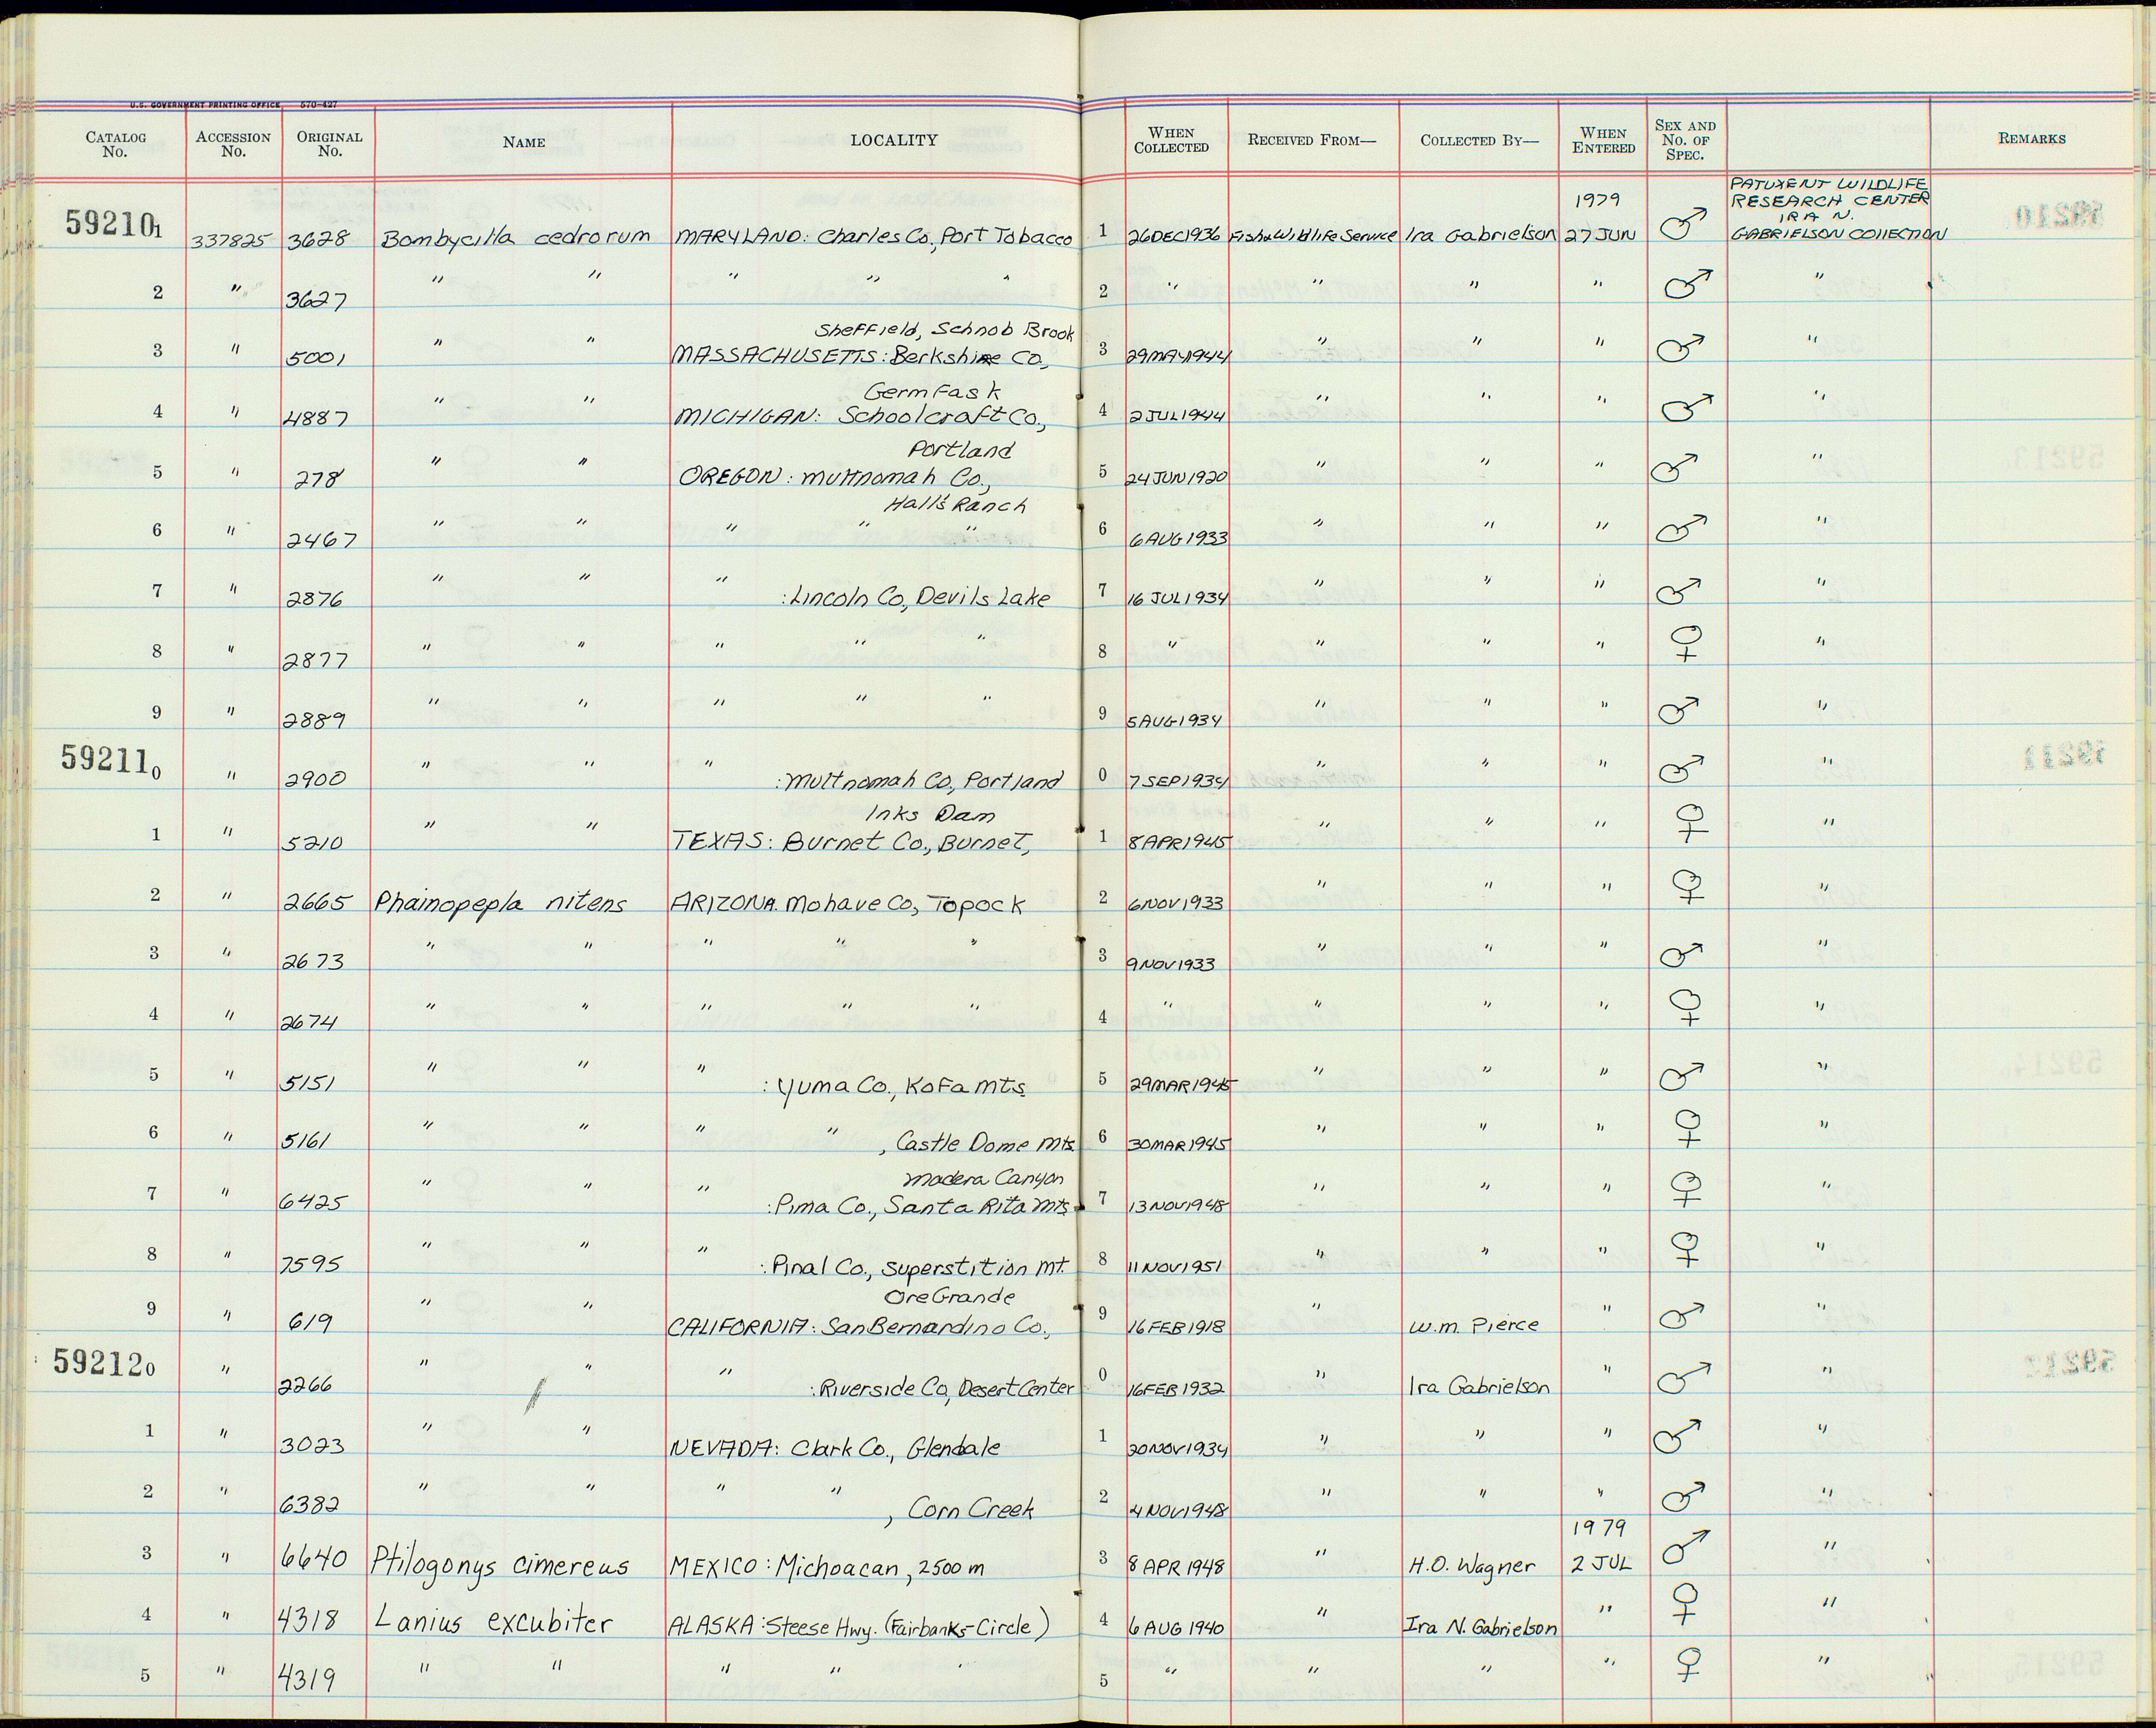 U.S. GOVERNMENT PRINTING OFFICE 570-427
CATALOG No. ACCESSION No. ORIGINAL No. NAME LOCALITY WHEN COLLECTED RECEIVED FROM— COLLECTED BY— WHEN ENTERED SEX AND No. OF SPEC. REMARKS
PATUXENT WILDLIFE
1979 RESEARCH CENTER
IRA N.
592101 337825 3628 Bombycilla cedrorum MARYLAND: Charles Co., Port Tobacco 1 26DEC1936 Fish & Wildlife Service Ira Gabrielson 27 JUN ♂ GABRIELSON COllECTION
2 " 3627 " " " " " 2 " " " " ♂ "
Sheffield, Schnob Brook
3 " 5001 " " MASSACHUSETTS: Berkshire Co., 3 29MAY1944 " " " ♂ "
Germfask
4 " 4887 " " MICHIGAN: Schoolcraft Co., 4 2JUL1944 " " " ♂ "
Portland
5 " 278 " " OREGON: Multnomah Co., 5 24JUN1920 " " " ♂ "
Hall's Ranch
6 " 2467 " " " " " 6 6AUG1933 " " " ♂ "
7 " 2876 " " " : Lincoln Co., Devils Lake 7 16 JUL1934 " " " ♂ "
8 " 2877 " " " " " 8 " " " " ♀ "
9 " 2889 " " " " " 9 5AUG1934 " " " ♂ "
592110 " 2900 " " " : Multnomah Co., Portland 0 7SEP1934 " " " ♂ "
Inks Dam
1 " 5210 " " TEXAS: Burnet Co., Burnet, 1 8APR1945 " " " ♀ "
2 " 2665 Phainopepla nitens ARIZONA. Mohave Co., Topock 2 6NOV1933 " " " ♀ "
3 " 2673 " " " " " 3 9NOV1933 " " " ♂ "
4 " 2674 " " " " " 4 " " " " ♀ "
5 " 5151 " " " : Yuma Co., Kofa Mts. 5 29MAR1945 " " " ♂ "
6 " 5161 " " " " , Castle Dome Mts. 6 30MAR1945 " " " ♀ "
Madera Canyon
7 " 6425 " " " : Pima Co., Santa Rita Mts. 7 13NOV1948 " " " ♀ "
8 " 7595 " " " : Pinal Co., Superstition Mt. 8 11NOV1951 " " " ♀ "
Ore Grande
9 " 619 " " CALIFORNIA: San Bernardino Co., 9 16FEB1918 " W.M. Pierce " ♂ "
592120 " 2266 " " " : Riverside Co., Desert Center 0 16FEB1932 " Ira Gabrielson " ♂ "
1 " 3023 " " NEVADA: Clark Co., Glendale 1 20NOV1934 " " " ♂ "
2 " 6382 " " " " , Corn Creek 2 4NOV1948 " " " ♂ "
1979
3 " 6640 Ptilogonys cimereus MEXICO: Michoacan, 2500 m 3 8 APR 1948 " H.O. Wagner 2 JUL ♂ "
4 " 4318 Lanius excubiter ALASKA: Steese Hwy. (Fairbanks-Circle) 4 6 AUG 1940 " Ira N. Gabrielson " ♀ "
5 " 4319 " " " " " 5 " " " " ♀ "